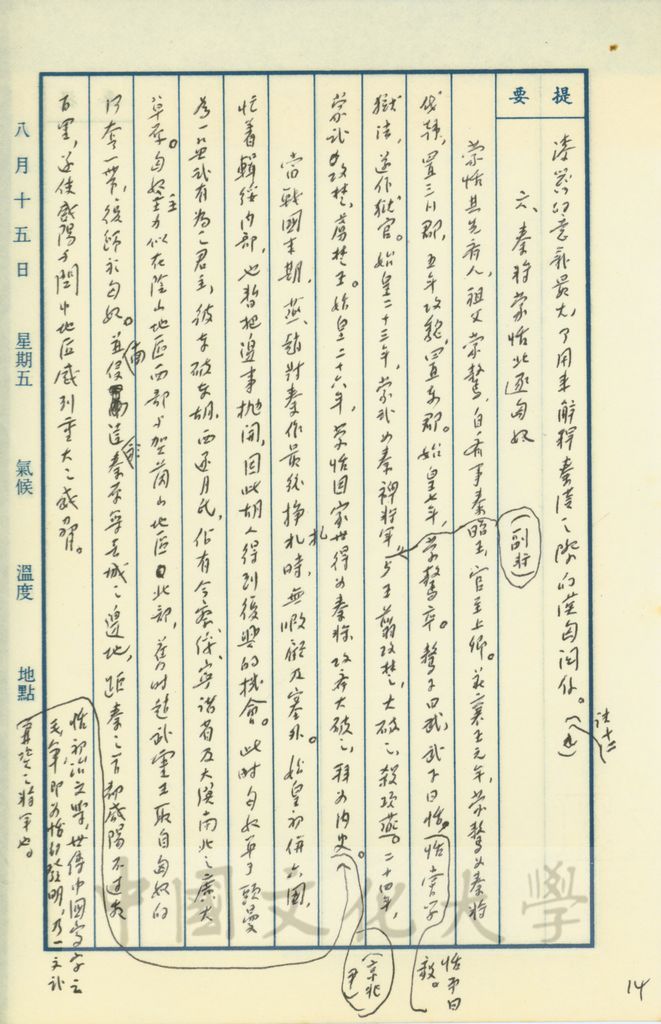 提要
湊等的意義最大，了用來解釋秦漢之際的漢匈關係。
註十二
六、秦將蒙恬北逐匈奴
蒙恬其先齊人，祖父蒙驁，自齊事秦昭王，官至上卿。莊襄王元年，蒙驁為秦將
伐韓，置三川郡，五年攻魏，置東郡。始皇七年，蒙驁卒。驁子曰武，武子曰恬。恬嘗學
獄法，遂作獄官。始皇二十三年，蒙武為秦裨將軍，與王翦攻楚，大破之，殺項燕。二十四年，
（副將）
蒙武攻楚，虜楚王。始皇二十六年，蒙恬因家世得為秦將，攻齊大破之，拜為內史。
（京兆尹）
恬弟曰毅。
當戰國末期，燕、趙對秦作最後掙扎時，無暇顧及塞外。始皇初併六國，
忙着輯綏內部，也暫把邊事拋開，因此胡人得到復興的機會。此時匈奴單于頭曼
為一英武有為之君主，彼東破東胡，西逐月氏，佔有今察、綏、寧諸省及大漠南北之廣大
草原。匈奴主力似在陰山地區西部與賀蘭山地區北部，舊時趙武靈王取自匈奴的
河套一帶，復歸於匈奴。並侵
秦之首都咸陽不過七
百里，遂使咸陽與關中地區感到重大之威脅。
恬初治文學，世傳中國寫字之
毛筆即為恬的發明，乃一文武
兼資之將軍也。
八月十五日 星期五 氣候 溫度 地點
14
中國文化大學